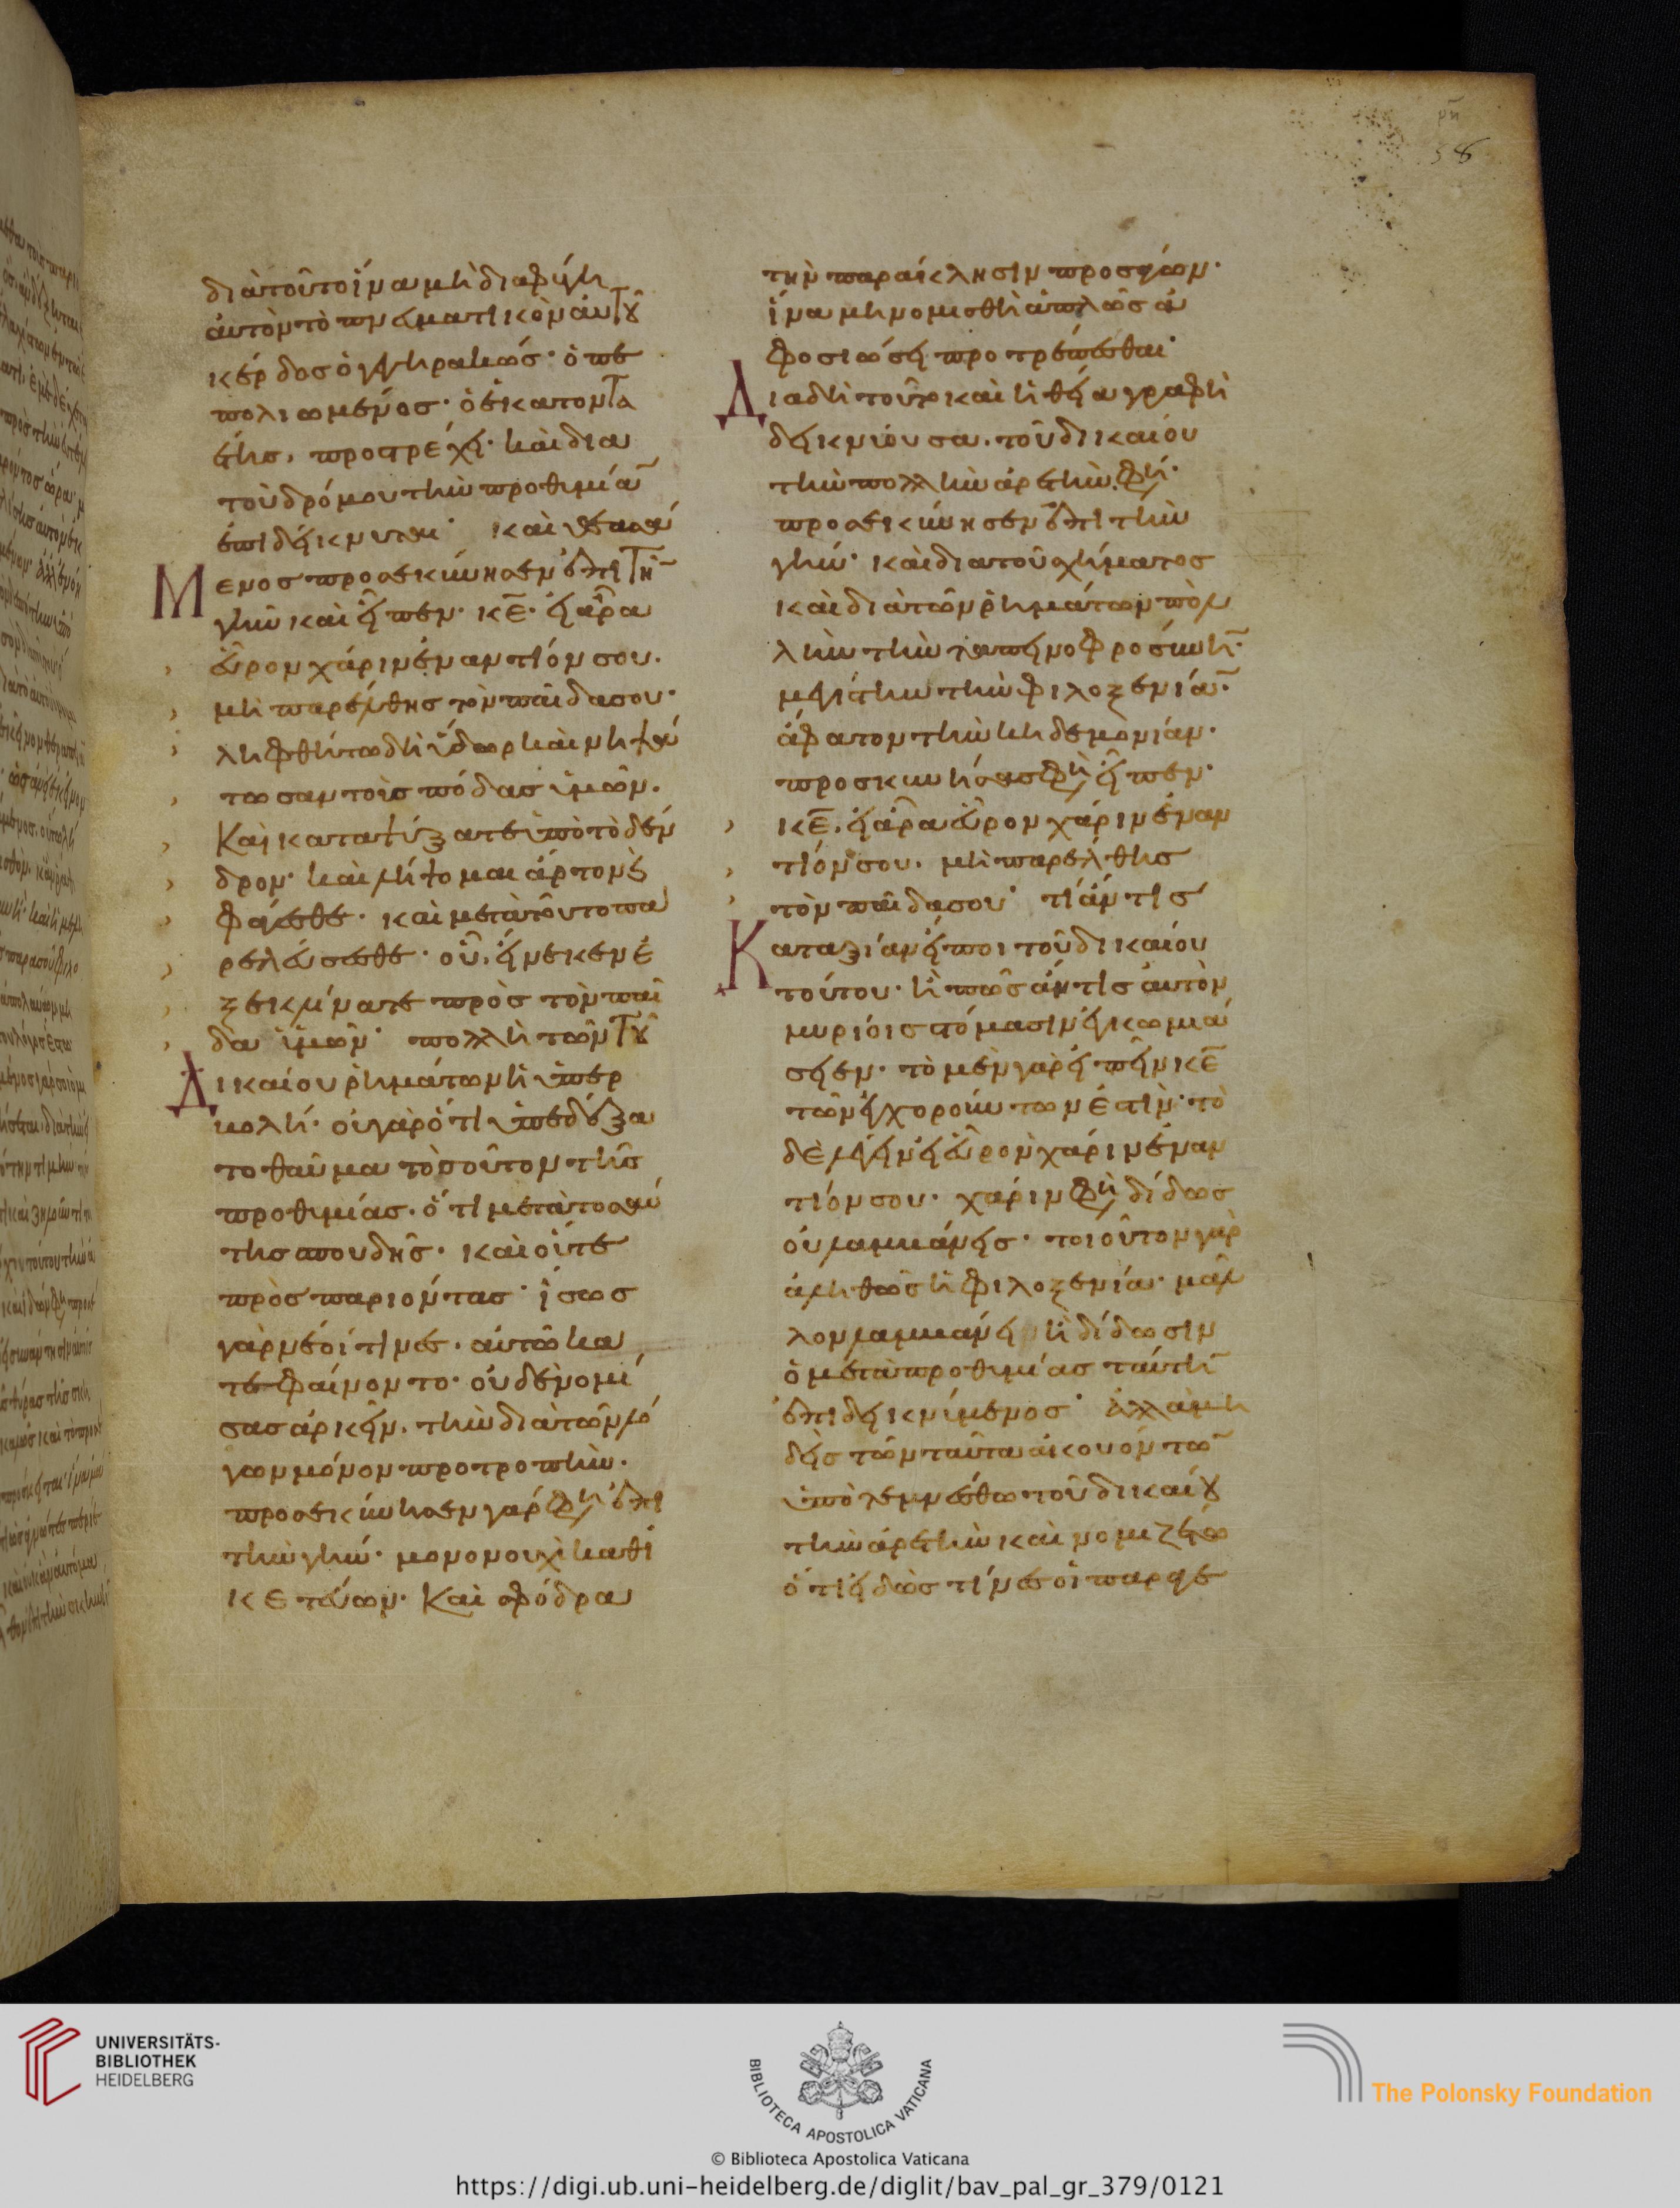 58
διατοῦτο ἵνα μὴ διαφύγη
ἀυτὸν τὸ πνευματικὸν ἀυτοῦ
κέρδος ὁ γηραιὸς· ὁ πε
πολιωμένος· ὁ ἑκατοντα
έτης, προστρέχει· καὶ δια
τοῦ δρόμου τὴν προθυμίαν
ἐπιδείκνυται· καὶ θεασά
Μενος προσεκύνησεν ἐπι τὴν
γῆν καὶ εἶπεν· κε̄· εἰ ἄρα
εὗρον χάριν ἐναντίον σου.
μὴ παρέλθης τὸν παῖδα σου·
ληφθήτω δὴ ὕδωρ καὶ νιψά
τωσαν τοὺς πόδας ὑμῶν.
Καὶ καταψύξατε ὑπὸ τὸ δέν
δρον· καὶ λήψομαι ἄρτον καὶ
φάγεσθε· καὶ μετὰ τοῦτο πα
ρελεύσεσθε· οὗ εἵνεκεν ἐ
ξεκλίνατε πρὸς τὸν παῖ
δα ὑμῶν· πολλὴ τῶν τοῦ
Δικαίου ῥημάτων ἡ ὑπερ
βολή· οὐ γὰρ ὅτι ὑπεδέξα
το θαῦμα τοσοῦτον τῆς
προθυμίας· ὅτι μετὰ τοσαύ
της σπουδῆς· καὶ οὕτε
πρὸς παριόντας· ἴσως
γὰρ νέοι τινες· αὐτῶ κα
τεφαίνοντο· οὐδὲ νομί
σας ἀρκεῖν, τὴν διὰ τῶν λό
γων μόνον προτροπὴν·
προσεκύνησεν γάρ φη ἐπι
τὴν γῆν· μονονουχὶ καθι
κετεύων· Καὶ σφόδρα
τὴν παράκλησιν προσάγων·
ἵνα μὴ νομισθῆ ἁπλῶς ἀ
φοσιώσει προτρέπεσθαι·
Δια δὴ τοῦτο καὶ ἡ θεία γραφὴ
δεικνύουσα, τοῦ δικαίου
τὴν πολλὴν ἀρετὴν, φη·
προσεκύνησεν ἐπι τὴν
γῆν· καὶ δια τοῦ σχήματος
καὶ διὰ τῶν ῥημάτων πολ
λὴν τὴν ταπεινοφροσύνην·
μεγίστην τὴν φιλοξενίαν·
ἄφατον τὴν κηδεμονίαν·
προσκυνήσας φη εἶπεν·
κε̄. εἰ ἄρα εὗρον χάριν ἐναν
τίον σου. μὴ παρέλθης
τὸν παῖδα σου· τί ἄν τις
Καταξίαν εἴποι τοῦ δικαίου
τούτου· ἢ πῶς ἄν τις ἀυτὸν
μυρίοις στόμασιν ἐγκωμιά
σειεν· τὸ μὲν γὰρ εἰπεῖν κε̄
τῶν εὐχορούντων ἐστὶν· τὸ
δὲ λέγειν εἰ εὗρον χάριν ἐναν
τίον σου· χάριν φη δίδως
οὐ λαμβάνεις· τοιοῦτον γὰρ
ἀληθῶς ἡ φιλοξενία· μᾶλ
λον λαμβάνει ἢ δίδωσιν
ὁ μετὰ προθυμίας ταύτην
ἐπιδεικνύμενος· ἀλλα μη
δεὶς τῶν ταῦτα ἀκουόντων
ὑποτεμνέσθω τοῦ δικαίου
τὴν ἀρετὴν καὶ νομιζέτω
ὅτι εἰδὼς τίνες οἱ παραγε
UNIVERSITÄTS-
BIBLIOTHEK
HEIDELBERG
BIBLIOTECA APOSTOLICA VATICANA
The Polonsky Foundation
© Biblioteca Apostolica Vaticana
https://digi.ub.uni-heidelberg.de/diglit/bav_pal_gr_379/0121